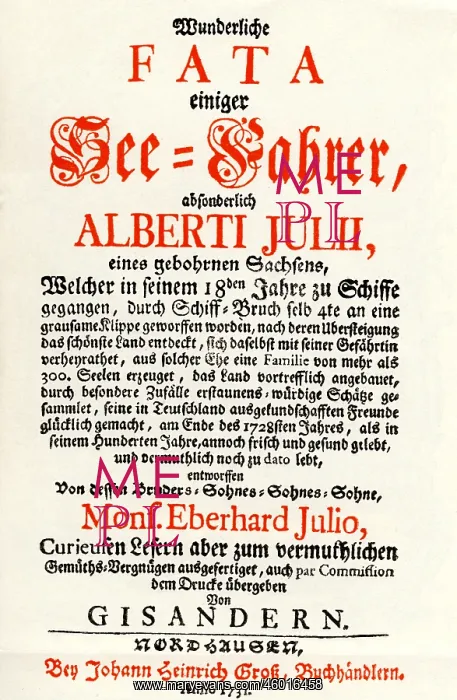 Wunderliche
FATA
einiger
See-Fahrer,
absonderlich
ALBERTI JULII,
eines gebohrnen Sachsens,
Welcher in seinem 18den Jahre zu Schiffe
gegangen, durch Schiff-Bruch selb 4te an eine
grausame Klippe geworffen worden, nach deren Übersteigung
das schönste Land entdeckt, sich daselbst mit seiner Gefährtin
verheyrathet, aus solcher Ehe eine Familie von mehr als
300. Seelen erzeuget, das Land vortrefflich angebauet,
durch besondere Zufälle erstaunens-würdige Schätze ge-
sammlet, seine in Teutschland ausgekundschafften Freunde
glücklich gemacht, am Ende des 1728sten Jahres, als in
seinem Hunderten Jahre, annoch frisch und gesund gelebt,
und vermuthlich noch zu dato lebt,
entworffen
Von dessen Bruders-Sohnes-Sohnes-Sohne,
Mons. Eberhard Julio,
Curieusen Lesern aber zum vermuthlichen
Gemüths-Vergnügen ausgefertiget, auch par Commission
dem Drucke übergeben
Von
GISANDERN.
NORDHAUSEN,
Bey Johann Heinrich Groß, Buchhändlern.
Anno 1731.
ME
PL
ME
PL
www.maryevans.com/46016458